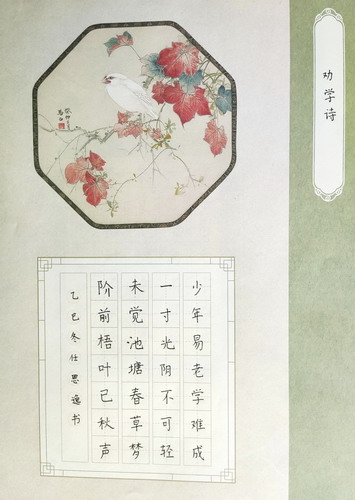 劝学诗
少年易老学难成
一寸光阴不可轻
未觉池塘春草梦
阶前梧叶已秋声
乙巳冬任思逸书